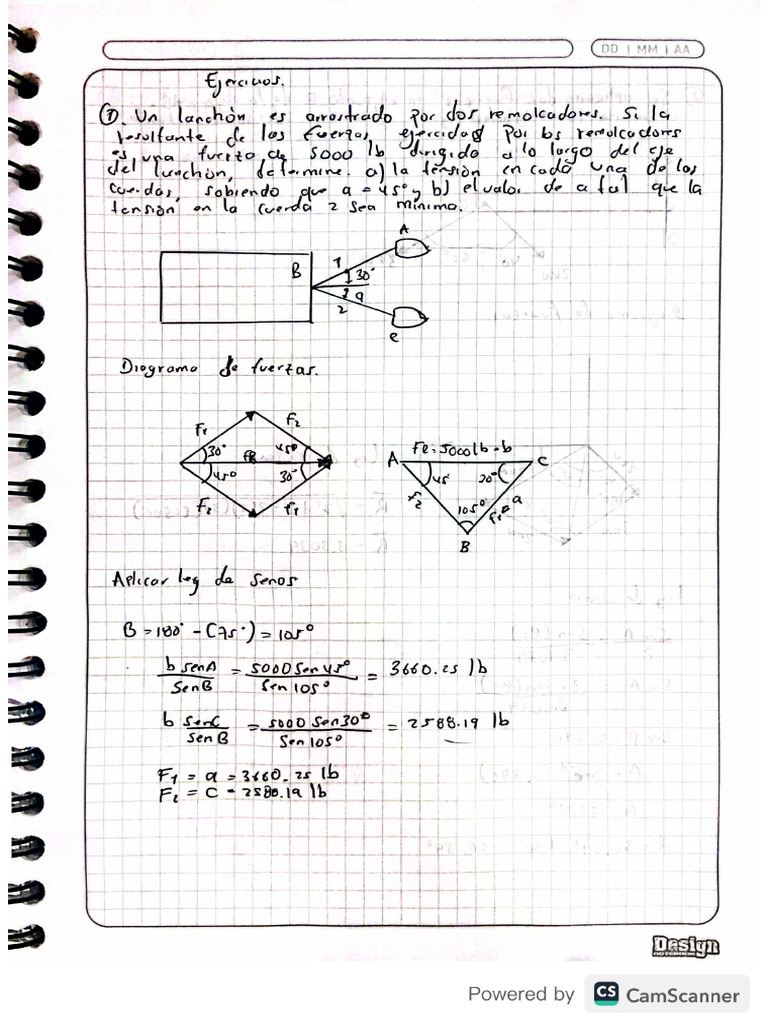 DD | MM | AA
Ejercicios.
① Un lanchón es arrastrado por dos remolcadores. Si la
resultante de las fuerzas ejercidas por los remolcadores
es una fuerza de 5000 lb dirigido a lo largo del eje
del lanchón, determine a) la tensión en cada una de las
cuerdas, sabiendo que a = 45° y b) el valor de a tal que la
tensión en la cuerda 2 sea mínima.
A
B 1 30°
a
2
C
Diagrama de fuerzas.
F1 F2
30° FR 45°
45° 30°
F2 F1
Fe = 5000 lb = b
A 45 C
F2 105° a
B
Aplicar ley de senos
B = 180° - (75°) = 105°
b senA / SenB = 5000 Sen 45° / Sen 105° = 3660.25 lb
b senC / sen B = 5000 Sen 30° / Sen 105° = 2588.19 lb
F1 = a = 3660.25 lb
F2 = C = 2588.19 lb
Design
NOTEBOOK
Powered by CS CamScanner